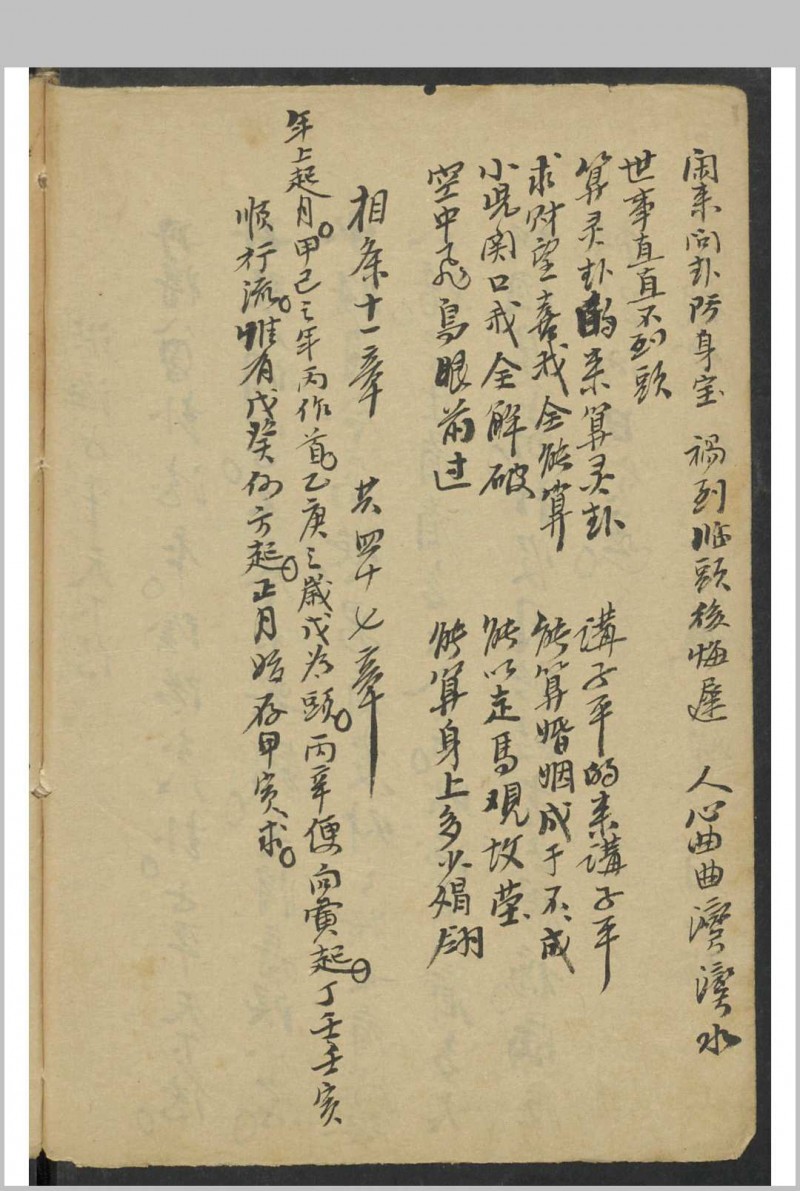 闲来问卦防身宝 祸到临頭後悔遲 人心曲曲湾湾水
世事直直不到頭
算灵卦的来算灵卦 講子平的来講子平
求财望喜我全能算 能算婚姻成于不成
小児関口我全解破 能以走馬覌坟莹
空中飞鳥眼前过 能算身上多少翎
相条十一章 共四十七章
年上起月。甲己之年丙作首。乙庚之歳戊为頭。丙辛便向寅起。丁壬壬寅
順行流。惟有戊癸何方起。正月始存甲寅求。